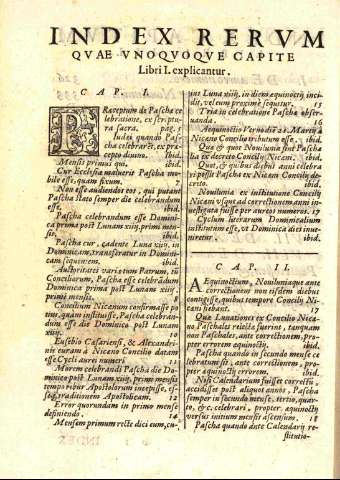 INDEX RERVM
QVAE VNOQVOQVE CAPITE
Libri I. explicantur.
CAP. I.
PRæceptum de Pascha ce
lebratione, ex scriptu
ra sacra. pag. 5
Iudei quando Pas-
cha celebraret, ex præ-
cepto diuino. ibid.
Mensis primus qui. ibid.
Cur Ecclesia maluerit Pascha mo-
bile esse, quam fixum. ibid.
Non esse audiendos eos, qui putant
Pascha stato semper die celebrandum
esse. ibid.
Pascha celebrandum esse Domini-
ca prima post Lunam xiiij. primi men-
sis. ibid.
Pascha cur, cadente Luna xiiij. in
Dominicam, transferatur in Domini-
cam sequentem. ibid.
Authoritates variæ tum Patrum, tũ
Conciliorum, Pascha esse celebrandum
Dominica prima post Lunam xiiij.
primi mensis. 8
Concilium Nicænum confirmasse po
tius, quam instituisse, Pascha celebran-
dum esse die Dominico post Lunam
xiiij. 10
Eusebio Cæsariensi, & Alexandri-
nis curam à Nicæno Concilio datam
esse Cycli aurei numeri 11
Morem celebrandi Pascha die Do-
minico post Lunam xiiij. primi mensis
tempore ubi Apostolorum incepisse, es-
seq. traditionem Apostolicam. 12
Error quorundam in primo mense
definiendo 14
Mensem primum recte dici eum, cu-
ius Luna xiiij. in diem æquinoctij inci
dit, vel eum proxime sequitur. 15
Tria in celebratione Paschæ obser-
uanda. 16
Aequinoctio Verno diẽ 21. Martij à
Nicæno Concilio tributum esse. ibid.
Qua & quo Nouilunia sint Pascha-
lia ex decreto Concilij Nicæni. ibid.
Quot, & quibus diebus anni celebra
ri possit Pascha ex Nicæni Concilij de-
creto. ibid.
Nouilunia ex institutione Concilij
Nicæni vsque ad correctionem anni in-
uestigata fuisse per aureos numeros. 17
Cyclum literarum Dominicalium
institutum esse, vt Dominica dies inue-
niretur. ibid.
CAP. II.
AEquinoctium, Nouiluniaque ante
correctionem non iisdem diebus
contigisse, quibus tempore Concilij Ni-
cæni fiebant. 17
Quæ Lunationes ex Concilio Nicæ-
no Paschales reiectæ fuerint, tanquam
non Paschales, ante correctionem, pro-
pter errorem æquinoctij. ibid.
Pascha quando in secundo mense ce
lebratum sit, ante correctionem, pro-
pter æquinoctij errorem. ibid.
Nisi Calendarium fuisset correctũ,
accidisse post aliquot annos, Pascha
semper in secundo mense, tertio, quar-
to, &c. celebrari, propter, æquinoctij
versus initium mensis ascensum. 18
Pascha quando ante Calendarij re-
stitutio-